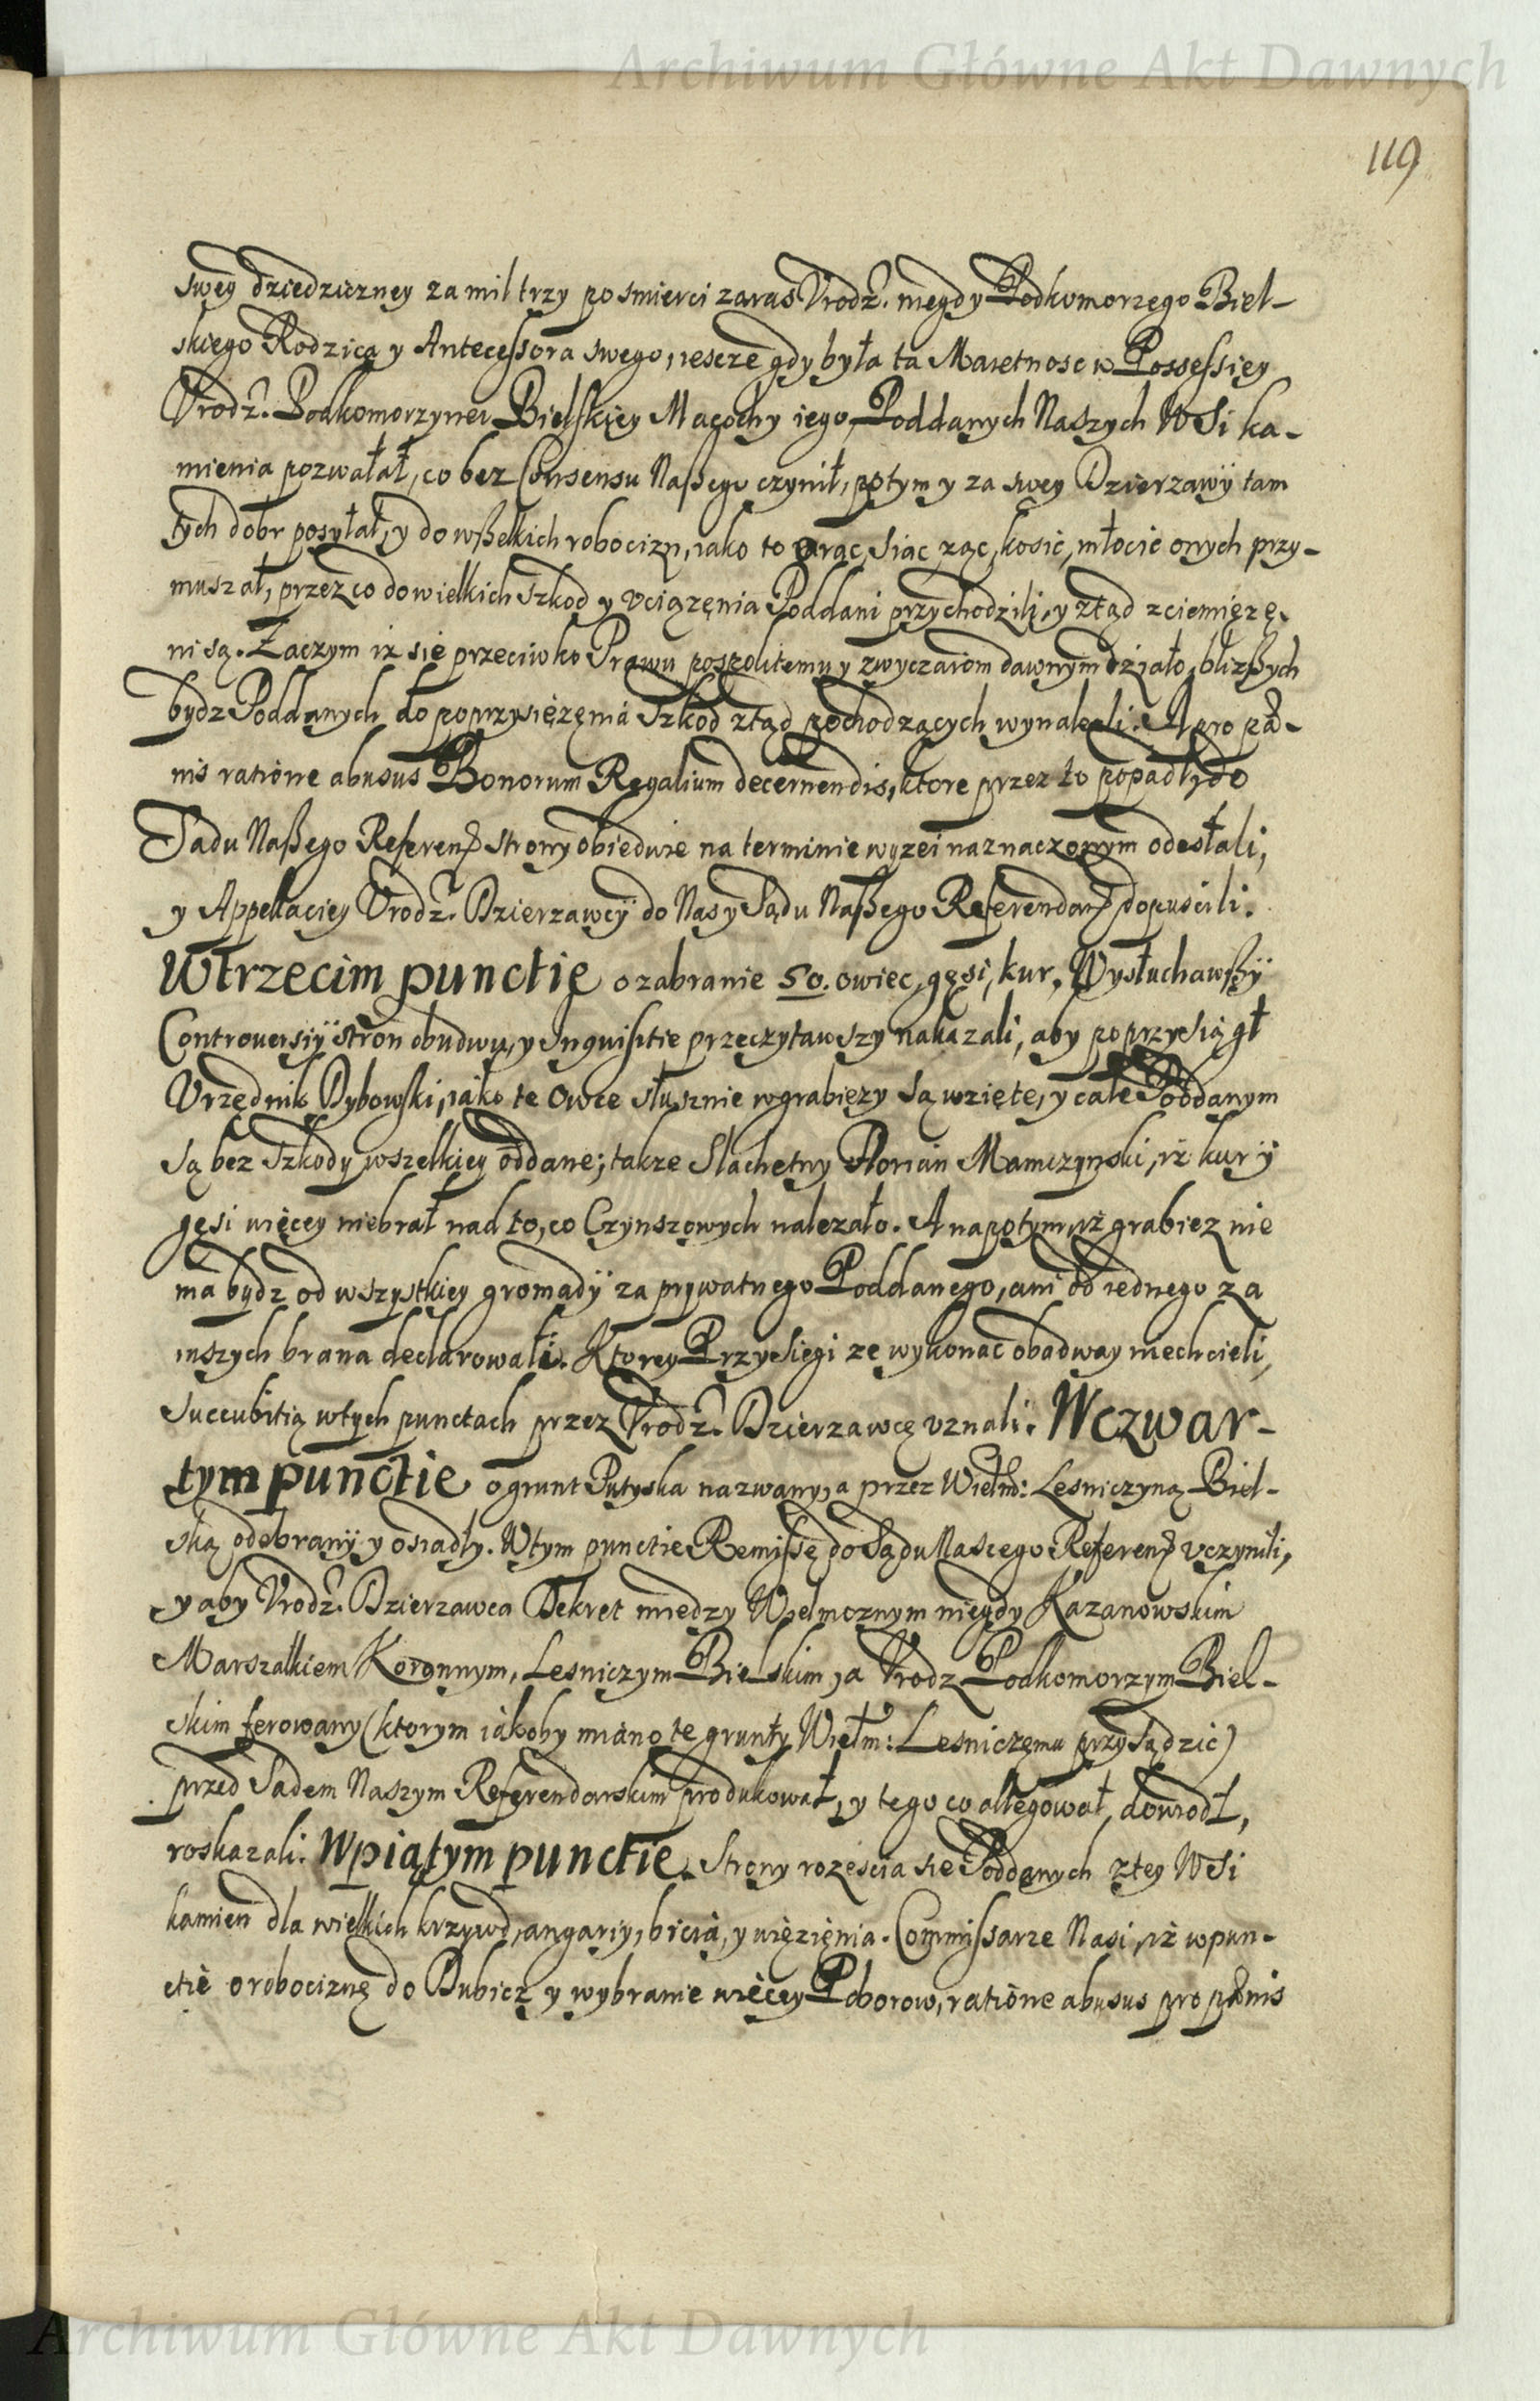 Archiwum Główne Akt Dawnych
119
swey dziedziczney za mil trzy po smierci zaras Vrodz. niegdy Podkomorzego Biel-
skiego Rodzica y Antecessora swego, iescze gdy była ta Maietnosc w Possessiey
Vrodz. Podkomorzynei Bielskiey Macochy iego, Poddanych Naszych WSi ka-
mienia pozwałał, co bez Consensu Naßego czynił, potym y za swey Dzierzawÿ tam
tych dobr posyłał, y do wßelkich robocizn, iako to orac, siac, ząc, kosić, młocić onych przy-
muszał, przez co do wielkich szkod y vciązęnia Poddani przychodzili, y ztąd zciemięzę-
ni są. Zaczym iz się przeciwko Prawu pospolitemu y zwyczaiom dawnym działo, blizßych
bydz Poddanych do poprzysięzęnia szkod ztąd pochodzących wynalezli. A pro pæ-
nis ratione abusus Bonorum Regalium decernendis, ktore przez to popadł, do
Sadu Naßego Referen. strony obiedwie na terminie wyzei naznaczonym odesłali,
y Appellaciey Vrodz. Dzierzawcÿ do Nas y Sądu Naßego Referendar. dopuscili.
W trzecim punctie o zabranie 50. owiec, gęsi, kur, Wysłuchawßÿ
Controuersiÿ stron obudwu, y Inquisitie przeczytawszy nakazali, aby poprzysiągł
Vrzędnik Dybowski, iako te owce słusznie w grabiezy są wzięte, y całe Poddanym
są bez szkody wszelkiey oddane; takze Slachetny Florian Mamczynski, iż kur ÿ
gęsi więcey niebrał nad to, co Czynszowych nalezało. A napotym iż grabiez nie
ma bydz od wszystkiey gromadÿ za prywatnego Poddanego, ani od iednego za
inszych brana declarowali. Ktorey Przysięgi ze wykonać obadway niechcieli,
succubitią w tych punctach przez Vrodz. Dzierzawcę vznali. W czwar-
tym punctie o grunt Putyska nazwany, a przez Wielm: Lesniczyną Biel-
ską odebranÿ y osiadły. W tym punctie Remissę do Sądu Naszego Referen. vczynili,
y aby Vrodz. Dzierzawca Dekret miedzy Wielmoznym niegdy Kazanowskim
Marszałkiem Koronnym, Lesniczym Bielskim, a Vrodz Podkomorzym Biel-
skim ferowany (ktorym iakoby miano te grunty Wielm: Lesniczemu przysądzic)
przed Sadem Naszym Referendarskim produkował, y tego co allegował, dowiodł,
roskazali. W piątym punctie. Strony rozescia sie Poddanych z tey WSi
kamien dla wielkich krzywd, angariy, bicia, y więzięnia. Commissarze Nasi, iż w pun-
ctie o robociznę do Dubicz y wybranie więcey Poborow, ratione abusus pro pænis
Archiwum Główne Akt Dawnych